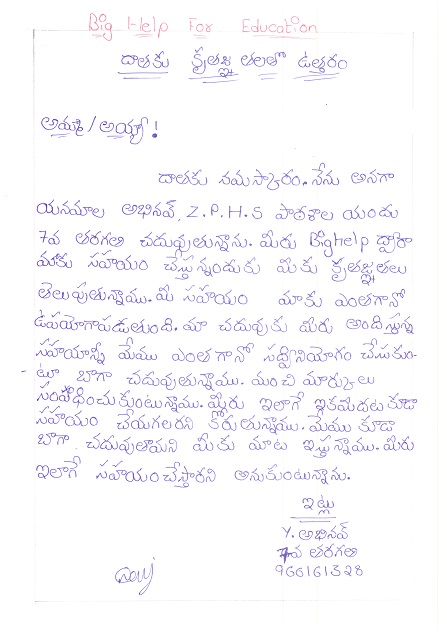 Big Help For Education
దాతకు కృతజ్ఞతలతో ఉత్తరం
అమ్మ/అయ్యా!
దాతకు నమస్కారం. నేను అనగా
యనమాల అభినవ్, Z.P.H.S పాఠశాల యందు
7వ తరగతి చదువుతున్నాను. మీరు BigHelp ద్వారా
మాకు సహాయం చేస్తున్నందుకు మీకు కృతజ్ఞతలు
తెలుపుతున్నాము. మీ సహాయం మాకు ఎంతగానో
ఉపయోగాపడుతుంది. మా చదువుకు మీరు అందిస్తున్న
సహయాన్ని మేము ఎంతగానో సద్వినియోగం చేసుకుం-
టూ బాగా చదువుతున్నాము. మంచి మార్కులు
సంపాధించుకుంటున్నాము. మీరు ఇలాగే ఇకమీదట కూడా
సహయం చేయగలరని కోరుతున్నాము. మేము కూడా
బాగా చదువుతామని మీకు మాట ఇస్తున్నాము. మీరు
ఇలాగే సహయంచేస్తారని అనుకుంటున్నాను.
ఇట్లు
Y. అభినవ్
7వ తరగతి
966161328